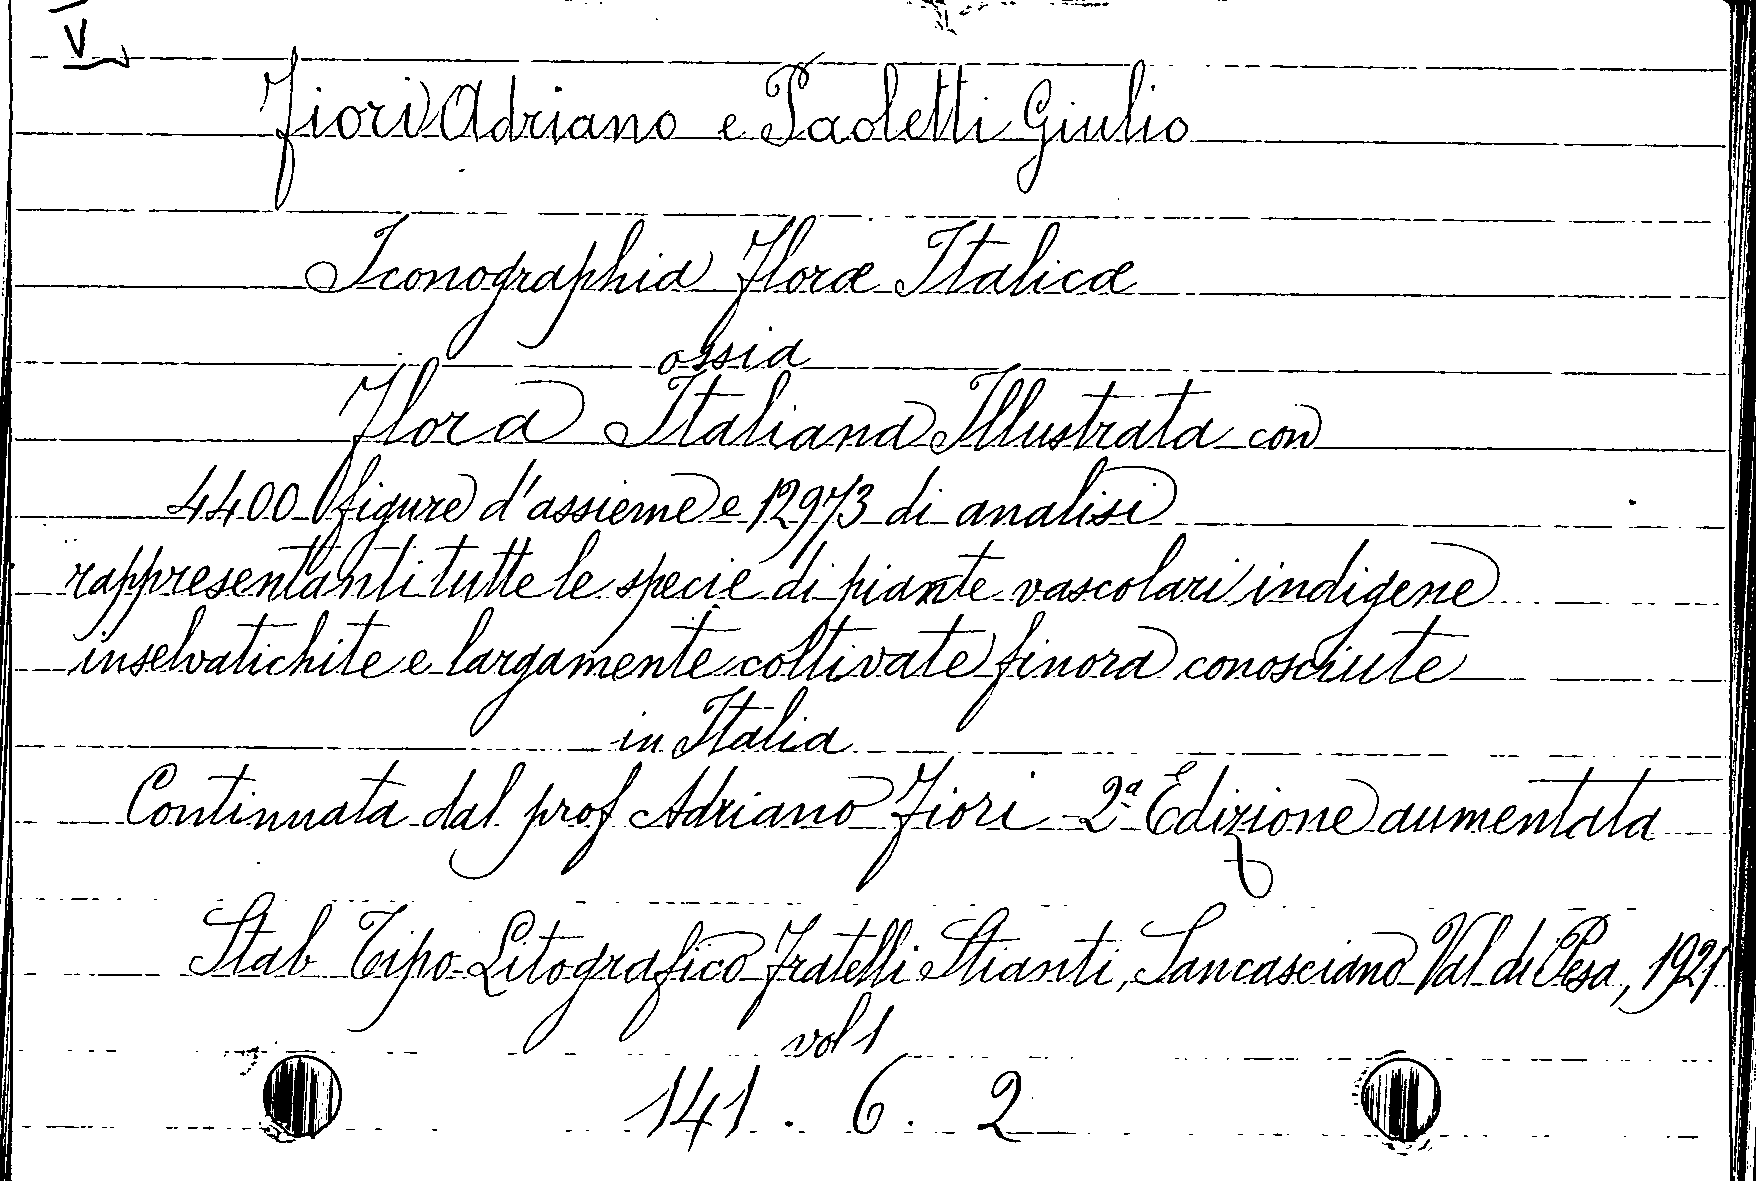 V
Fiori Adriano e Paoletti Giulio
Iconographia Floræ Italicæ
ossia
Flora Italiana Illustrata con
4400 figure d'assieme e 12973 di analisi
rappresentanti tutte le specie di piante vascolari indigene
inselvatichite e largamente coltivate finora conosciute
in Italia
Continuata dal prof Adriano Fiori 2ª Edizione aumentata
Stab Tipo-Litografico Fratelli Stianti, Sancasciano Val di Pesa, 1921
vol 1
141 . 6 . 2